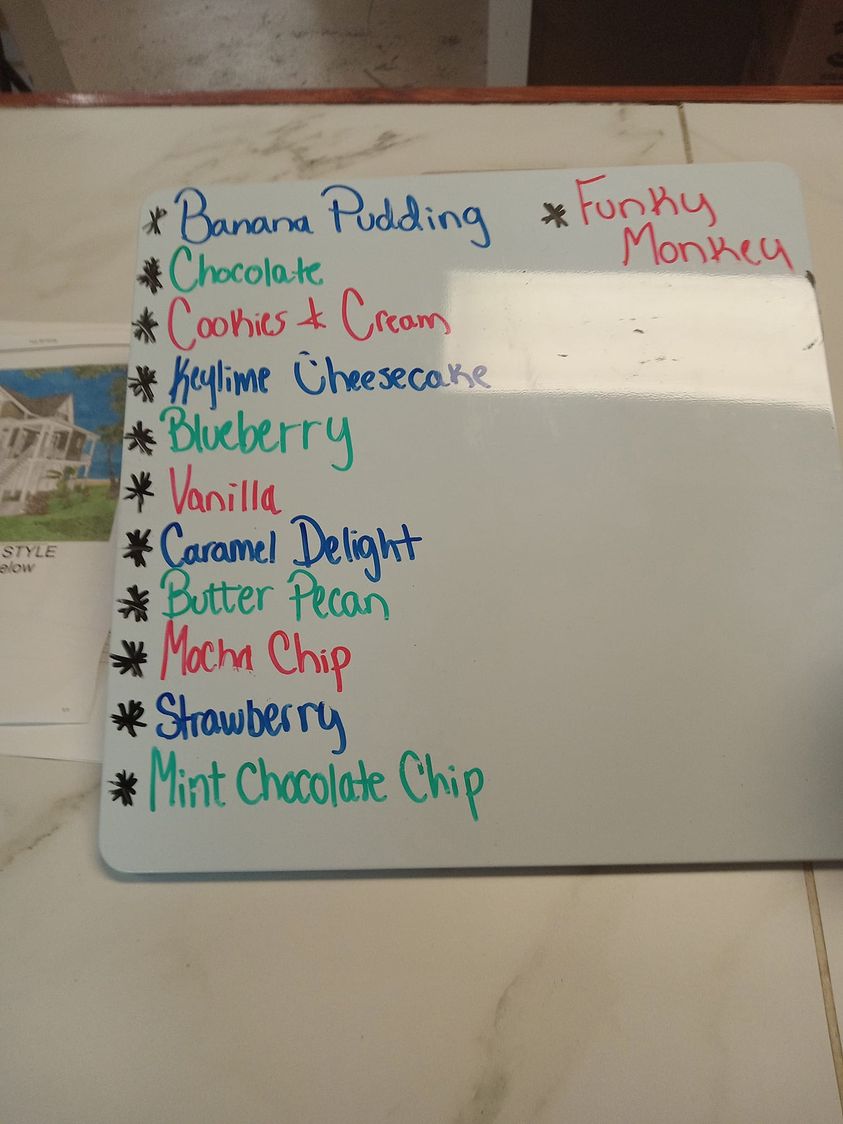 * Banana Pudding
* Chocolate
* Cookies & Cream
* Keylime Cheesecake
* Blueberry
* Vanilla
* Caramel Delight
* Butter Pecan
* Mocha Chip
* Strawberry
* Mint Chocolate Chip
* Funky
Monkey
STYLE
elow